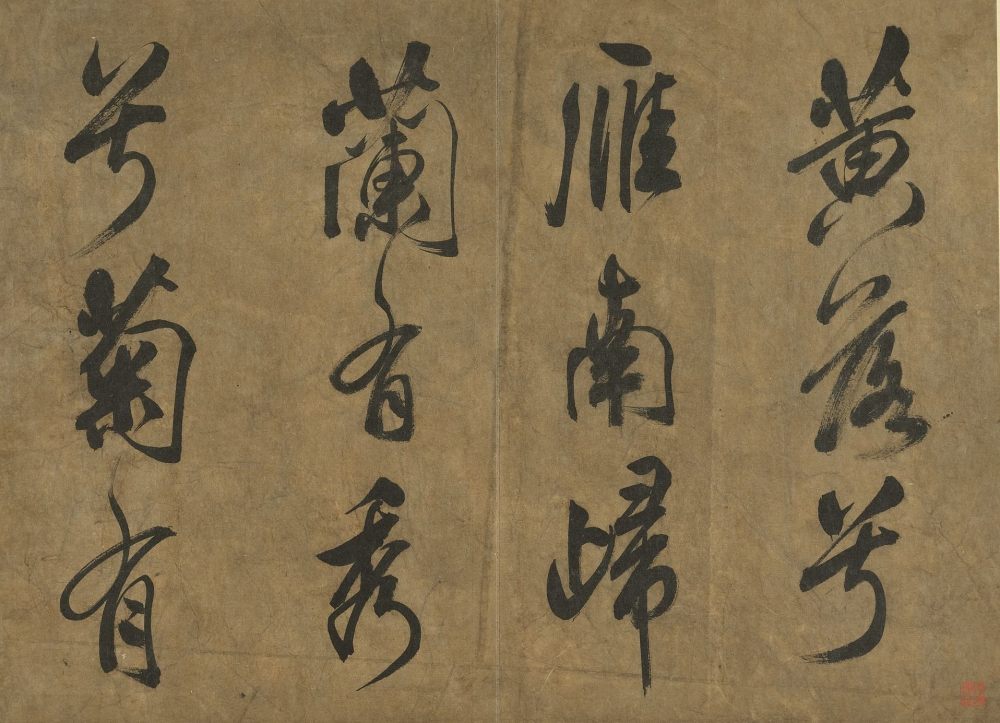 黄落兮
雁南歸
蘭有秀
兮菊有